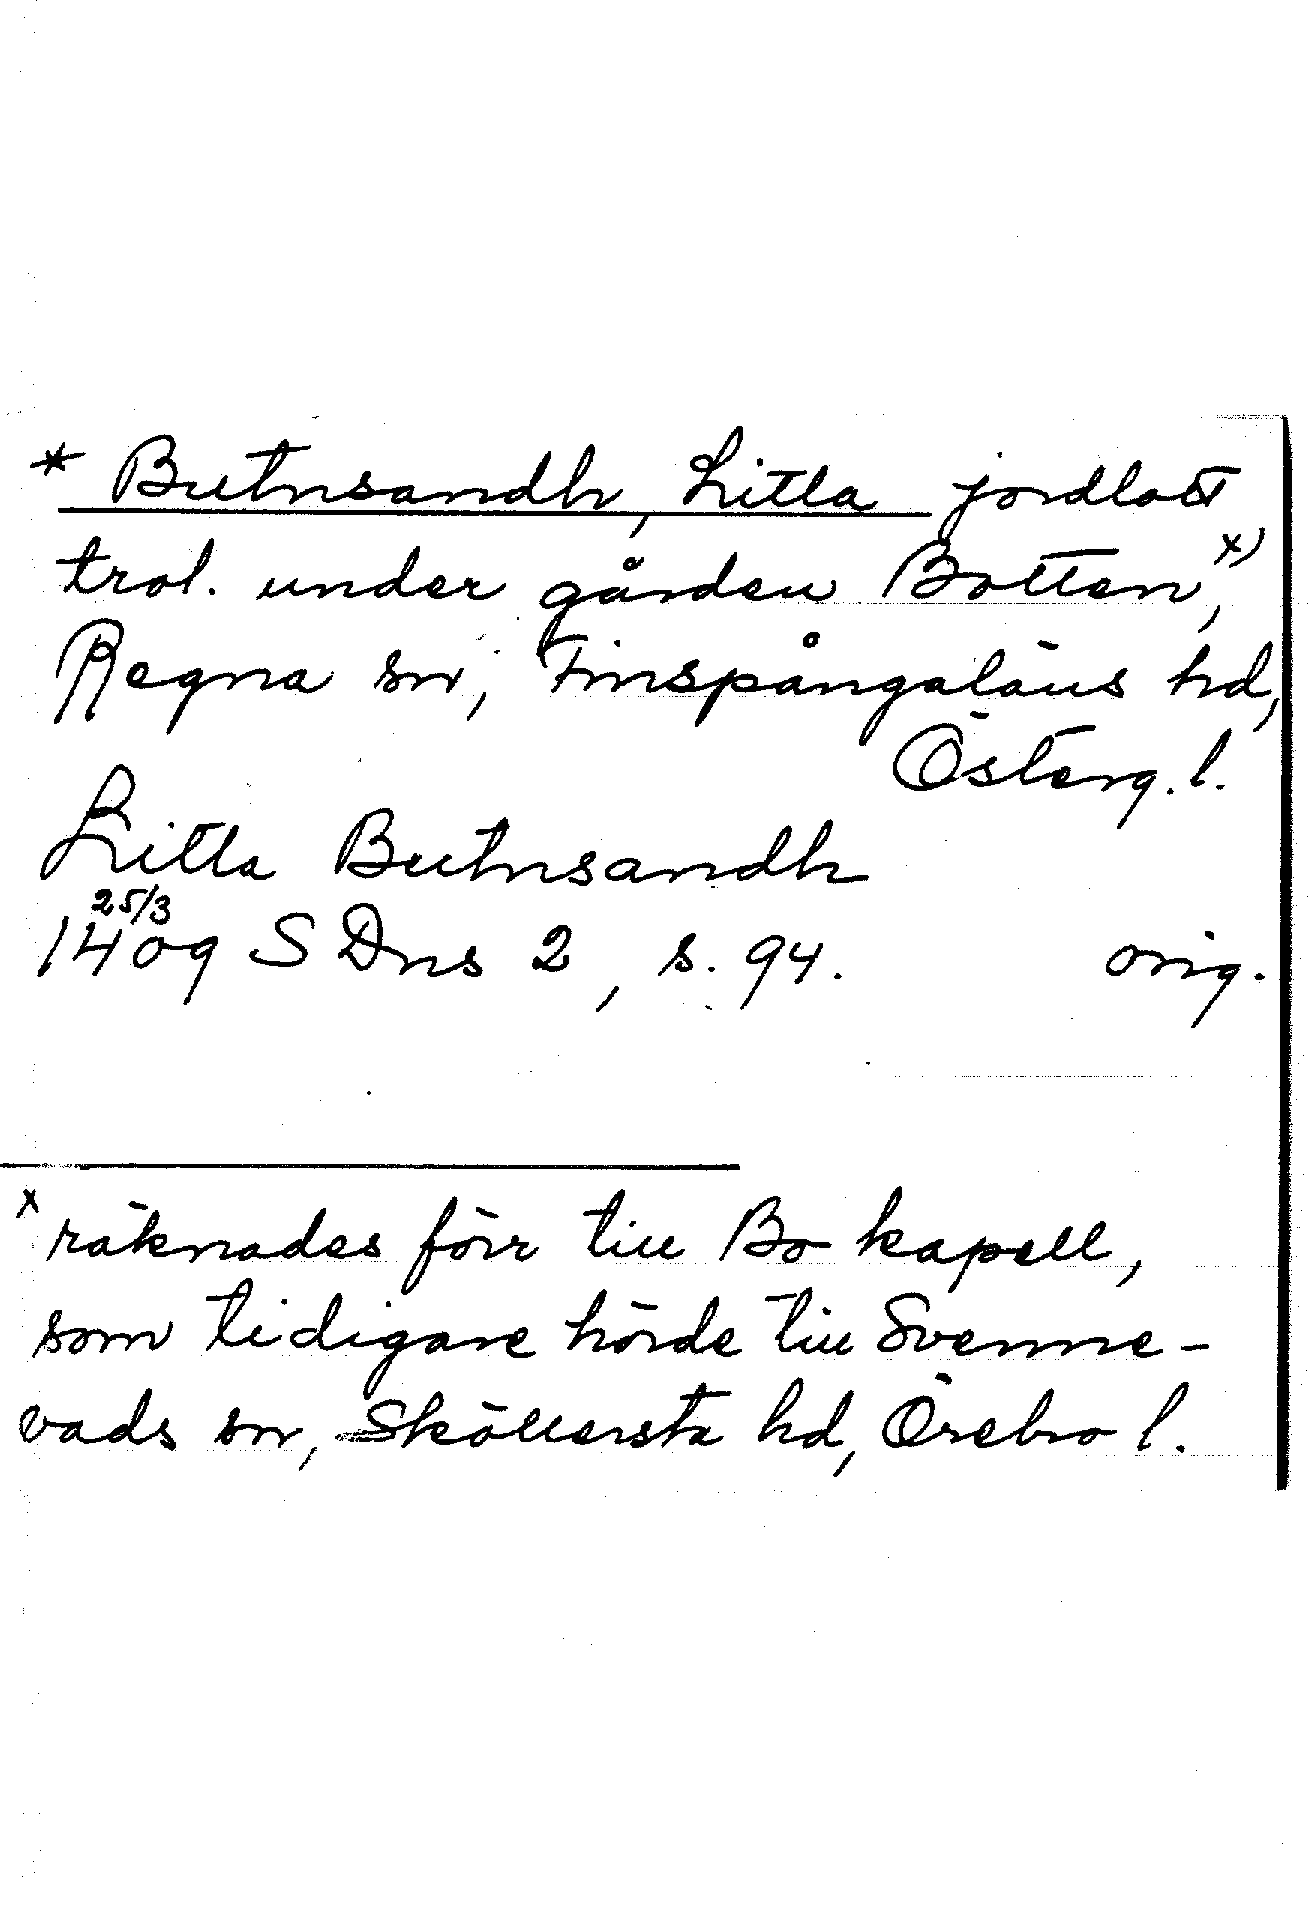 * Butnsandh, Litla jordlott
trol. under gården Botten, x)
Regna sn, Finspångaläns hd,
Österg. l.
Litla Butnsandh
25/3
1409 SDns 2, s. 94. orig.
x räknades förr till Bo kapell,
som tidigare hörde till Svenne-
vads sn, Sköllersta hd, Örebro l.